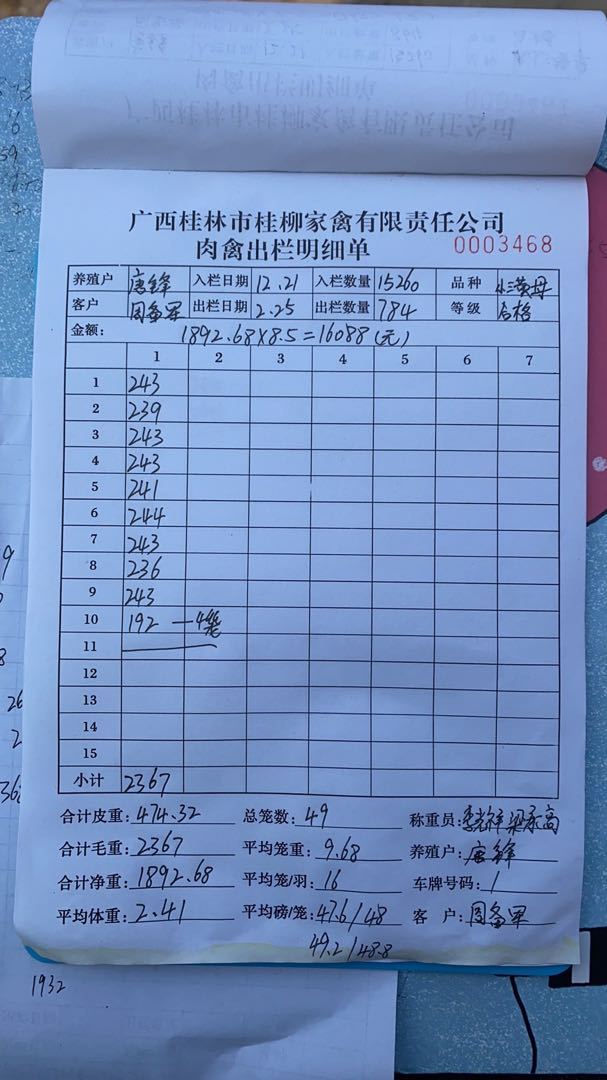 广西桂林市桂柳家禽有限责任公司
肉禽出栏明细单 0003468
养殖户 唐锋 入栏日期 12.21 入栏数量 15260 品种
客户 周备军 出栏日期 2.25 出栏数量 784 等级 合格
金额: 1892.68×8.5=16088(元)
1 2 3 4 5 6 7
1 243
2 239
3 243
4 243
5 241
6 244
7 243
8 236
9 243
10 192 —4笼
11
12
13
14
15
小计 2367
合计皮重: 474.32 总笼数: 49 称重员:
合计毛重: 2367 平均笼重: 9.68 养殖户: 唐锋
合计净重: 1892.68 平均笼/羽: 16 车牌号码: 1
平均体重: 2.41 平均磅/笼: 47.6/48 客户: 周备军
49.2/48.8
1932